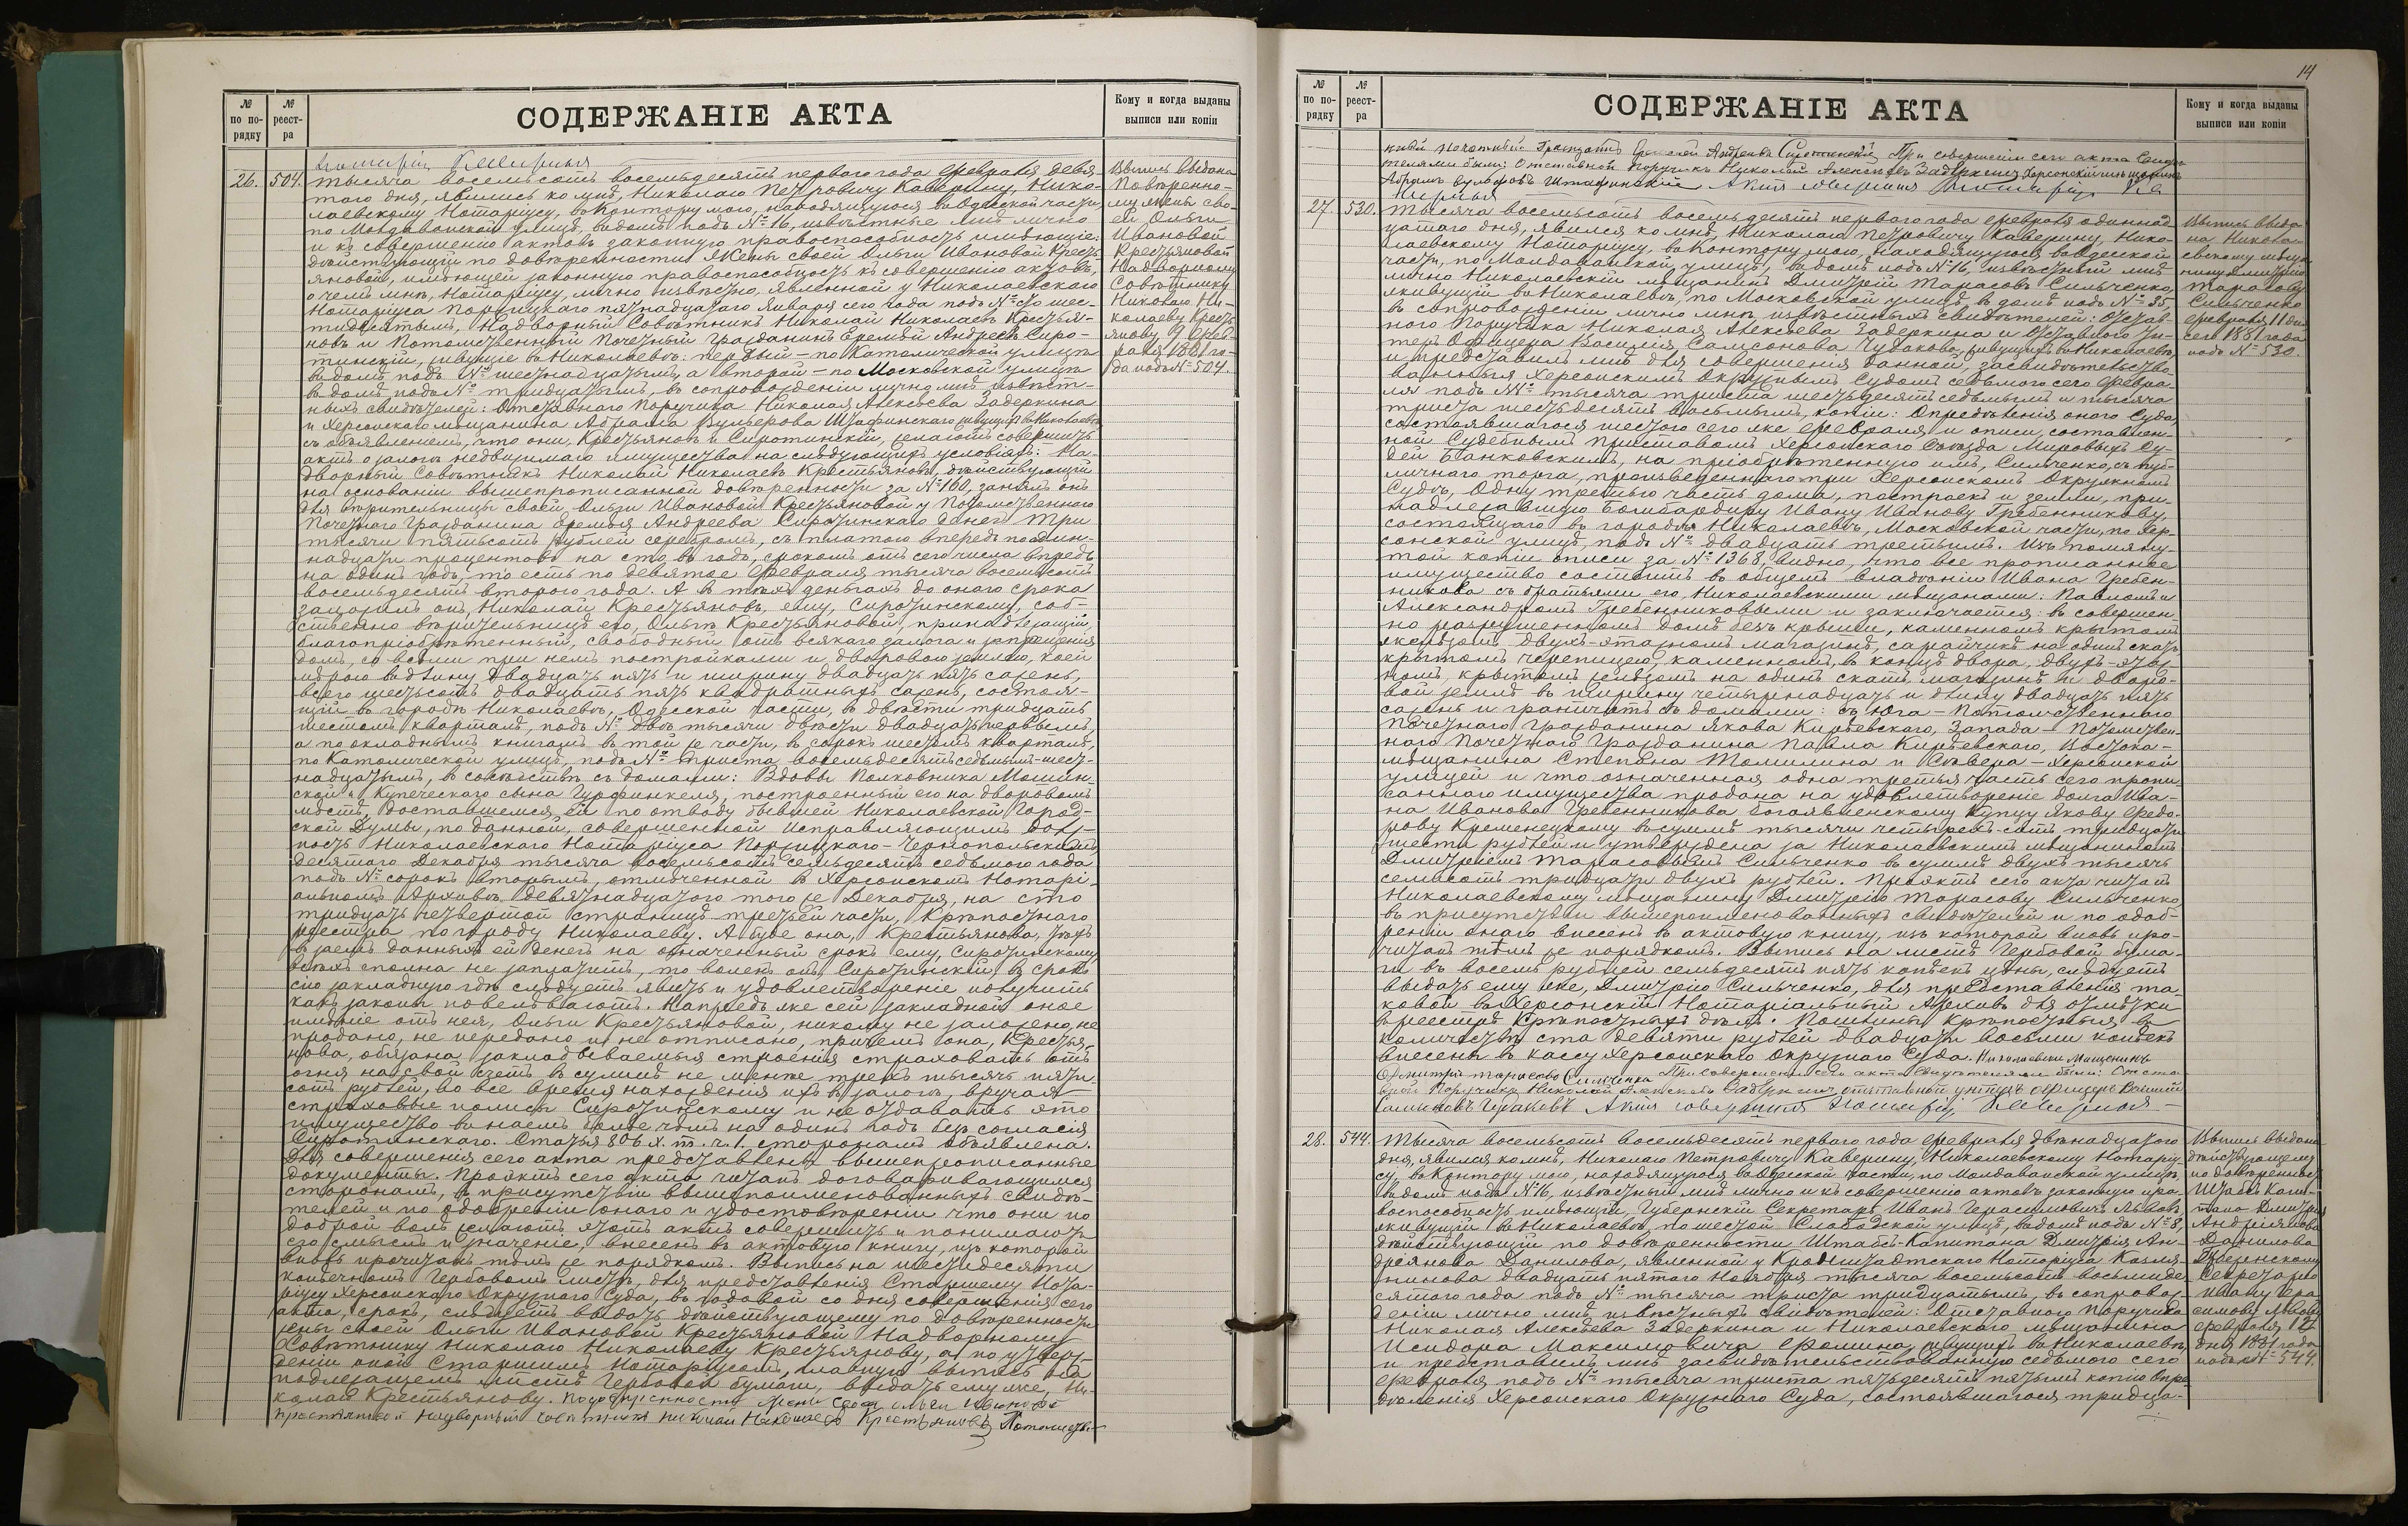 № по порядку
№ реестра
СОДЕРЖАНІЕ АКТА
Кому и когда выданы выписи или копіи
Нотаріусъ
26. 504. Тысяча восемьсотъ восемьдесятъ перваго года Февраля девя-
таго дня, явились ко мнѣ, Николаю Петровичу Каверину, Нико-
лаевскому Нотаріусу, въ Контору мою, находящуюся въ Одесской части,
по Молдаванской улицѣ, въ домѣ подъ № 16, извѣстные мнѣ лично
и къ совершенію актовъ законную правоспособность имѣющіе:
дѣйствующій по довѣренности Жены своей Ольги Ивановой Кресть-
яновой, имѣющей законную правоспособность къ совершенію актовъ,
о чемъ мнѣ, Нотаріусу, лично извѣстно, явленной у Николаевскаго
Нотаріуса Поржицкаго пятнадцатаго Января сего года подъ № сто шес-
тидесятымъ, Надворный Совѣтникъ Николай Николаевъ Крестья-
новъ и Потомственный Почетный Гражданинъ Еремѣй Андреевъ Сиро-
тинскій, живущіе въ Николаевѣ: первый - по Католической улицѣ
въ домѣ подъ № шестнадцатымъ, а второй - по Московской улицѣ
въ домѣ подъ № тридцатымъ, въ сопровожденіи лично мнѣ извѣст-
ныхъ свидѣтелей: Отставнаго Поручика Николая Алексѣева Задеркина
и Херсонскаго мѣщанина Абрама Вульфова Штафинскаго живущихъ въ Николаевѣ
съ объявленіемъ, что они, Крестьяновъ и Сиротинскій, желаютъ совершить
актъ о залогѣ недвижимаго имущества на слѣдующихъ условіяхъ: На-
дворный Совѣтникъ Николай Николаевъ Крестьяновъ, дѣйствующій
на основаніи вышепрописанной довѣренности за № 160, занялъ онъ
для вѣрительницы своей Ольги Ивановой Крестьяновой у Потомственнаго
Почетнаго Гражданина Еремѣя Андреева Сиротинскаго денегъ три
тысячи пятьсотъ рублей серебромъ, съ платою впередъ по один-
надцати процентовъ на сто въ годъ, срокомъ отъ сего числа впредь
на одинъ годъ, то есть по девятое Февраля тысяча восемьсотъ
восемьдесятъ втораго года. А въ тѣхъ деньгахъ до онаго срока
заложилъ онъ, Николай Крестьяновъ, ему, Сиротинскому, соб-
ственно вѣрительницѣ его, Ольгѣ Крестьяновой, принадлежащій,
благопріобрѣтенный, свободный отъ всякаго залога и запрещенія
домъ, со всѣми при немъ постройками и дворовою землею, коей
мѣрою въ длину двадцать пять и ширину двадцать пять сажень,
всего шестьсотъ двадцать пять квадратныхъ сажень, состоя-
щій въ городѣ Николаевѣ, Одесской части, въ двѣсти тридцать
шестомъ кварталѣ, подъ № двѣ тысячи двѣсти двадцать первымъ,
а по окладнымъ книгамъ въ той же части, въ сорокъ шестомъ кварталѣ,
по Католической улицѣ, подъ № триста восемьдесятъ седьмымъ-шест-
надцатымъ, въ сосѣдствѣ съ домами: Вдовы Полковника Мошин-
ской и Купеческаго сына Гурфинкеля, построенный его на дворовомъ
мѣстѣ, доставшемся ей по отводу бывшей Николаевской Город-
ской Думы, по данной, совершенной исправляющимъ долж-
ность Николаевскаго Нотаріуса Поржицкаго-Чернопольскимъ
десятаго Декабря тысяча восемьсотъ семьдесятъ седьмого года
подъ № сорокъ вторымъ, отмѣченной въ Херсонскомъ Нотарі-
альномъ Архивѣ девятнадцатого того же Декабря, на сто
тридцать четвертой страницѣ третьей части, Крѣпостнаго
реестра по городу Николаеву. А буде она, Крестьянова,
въ заемъ данныхъ ей денегъ на означенный срокъ ему, Сиротинскому
всѣхъ сполна не заплатитъ, то воленъ онъ, Сиротинскій, въ срокъ
сію закладную гдѣ слѣдуетъ явить и удовлетвореніе получить
какъ законы повелѣваютъ. Напредь же сей закладной оное
имѣніе отъ нея, Ольги Крестьяновой, никому не заложено, не
продано, не передано и не отписано, причемъ она, Крестья-
нова, обязана закладываемыя строенія страховать отъ
огня на свой счетъ въ суммѣ не менѣе трехъ тысячъ пяти-
сотъ рублей, во все время нахожденія ихъ въ залогѣ, вручать
страховые полисы Сиротинскому и не отдавать это
имущество въ наемъ болѣе чѣмъ на одинъ годъ безъ согласія
Сиротинскаго. Статья 806 X т. ч. 1. сторонамъ объявлена.
Для совершенія сего акта представлены вышепрописанные
документы. Проэктъ сего акта читанъ договаривающимся
сторонамъ, въ присутствіи вышепоименованныхъ свидѣ-
телей и по одобреніи онаго и удостовѣреніи что они по
доброй волѣ желаютъ этотъ актъ совершить и понимаютъ
его смыслъ и значеніе, внесенъ въ актовую книгу, изъ которой
вновь прочитанъ тѣмъ же порядкомъ. Выпись на шестидесяти
копѣечномъ Гербовомъ листѣ, для представленія Старшему Нота-
ріусу Херсонскаго Окружнаго Суда, въ годовой со дня совершенія сего
акта, срокъ, слѣдуетъ выдать дѣйствующему по довѣренности
жены своей Ольги Ивановой Крестьяновой Надворному
Совѣтнику Николаю Николаеву Крестьянову, а по утверж-
деніи оной Старшимъ Нотаріусомъ, главную выпись на
подлежащемъ листѣ Гербовой бумаги, выдать ему же, Ни-
колаю Крестьянову. По довѣренности жены своей Ольги Ивановой
Крестьяновой Надворный Совѣтникъ Николай Николаевъ Крестьяновъ Потомствен-
Выпись выдана
Повѣренно-
му жены сво-
ей Ольги
Ивановой
Крестьяновой
Надворному
Совѣтнику
Николаю Ни-
колаеву Кресть-
янову 9 Фев-
раля 1881 го-
да подъ № 504.
14
№ по порядку
№ реестра
СОДЕРЖАНІЕ АКТА
Кому и когда выданы выписи или копіи
ный почетный Гражданинъ Еремѣй Андреевъ Сиротинскій При совершеніи сего акта Свидѣ-
телями были: Отставной Поручикъ Николай Алексѣевъ Задеркинъ Херсонскій мѣщанинъ
Абрамъ Вульфовъ Штафинскій Актъ совершилъ Нотаріусъ
27. 530. Тысяча восемьсотъ восемьдесятъ перваго года Февраля одиннад-
цатаго дня, явился ко мнѣ, Николаю Петровичу Каверину, Нико-
лаевскому Нотаріусу, въ Контору мою, находящуюся въ Одесской
части, по Молдаванской улицѣ, въ домѣ подъ № 16, извѣстный мнѣ
лично Николаевскій мѣщанинъ Дмитрій Тарасовъ Сильченко,
живущій въ Николаевѣ, по Московской улицѣ, въ домѣ подъ № 35,
въ сопровожденіи лично мнѣ извѣстныхъ свидѣтелей: Отстав-
ного Поручика Николая Алексѣева Задеркина и Отставного Ун-
теръ Офицера Василія Самсонова Чубакова живущихъ въ Николаевѣ,
и представилъ мнѣ для совершенія данной, засвидѣтельство-
ванныя Херсонскимъ Окружнымъ Судомъ седьмого сего Февра-
ля подъ №№ тысяча триста шестьдесятъ седьмымъ и тысяча
триста шестьдесятъ восьмымъ, копіи: Опредѣленія онаго Суда,
состоявшагося шестого сего же Февраля и описи, составлен-
ной Судебнымъ Приставомъ Херсонскаго Съѣзда Мировыхъ Су-
дей Банковскимъ, на пріобрѣтенную имъ, Сильченко, съ пуб-
личнаго торга, произведеннаго при Херсонскомъ Окружномъ
Судѣ, Одну третью часть дома, построекъ и земли, при-
надлежавшую Бомбардиру Ивану Иванову Гребенникову,
состоящаго въ городѣ Николаевѣ, Московской части, по Хер-
сонской улицѣ, подъ № двадцать третьимъ. Изъ помяну-
той копіи описи за № 1368, видно, что все прописанное
имущество состоитъ въ общемъ владѣніи Ивана Гребен-
никова съ братьями его, Николаевскими мѣщанами: Павломъ и
Александромъ Гребенниковыми и заключается: въ совершен-
но разрушенномъ домѣ безъ крыши, каменномъ крытомъ
желѣзомъ двухъ-этажномъ магазинѣ, сарайчикѣ на одинъ скатъ
крытомъ черепицею, каменномъ, въ концѣ двора, двухъ-этаж-
номъ, крытомъ желѣзомъ на одинъ скатъ, магазинѣ и дворо-
вой землѣ въ ширину четырнадцать и длину двадцать пять
сажень и граничитъ съ домами: съ Юга - Потомственного
Почетнаго Гражданина Якова Кирьевскаго, Запада - Потомствен-
наго Почетнаго Гражданина Павла Кирьевскаго, Востока -
мѣщанина Степана Томилина и Сѣвера - Херсонской
улицей и что означенная одна третья часть сего пропи-
саннаго имущества продана на удовлетвореніе долга Ива-
на Иванова Гребенникова Богоявленскому Купцу Якову Федо-
рову Кременецкому въ суммѣ тысячи четырехъ-сотъ тридцати
шести рублей и утверждена за Николаевскимъ мѣщаниномъ
Дмитріемъ Тарасовымъ Сильченко въ суммѣ двухъ тысячъ
семисотъ тридцати двухъ рублей. Проэктъ сего акта читанъ
Николаевскому мѣщанину Дмитрію Тарасову Сильченко,
въ присутствіи вышепоименованныхъ свидѣтелей и по одоб-
реніи онаго внесенъ въ актовую книгу, изъ которой вновь про-
читанъ тѣмъ же порядкомъ. Выпись на листѣ Гербовой бума-
ги въ восемь рублей семьдесятъ пять копѣекъ цѣны, слѣдуетъ
выдать ему же, Дмитрію Сильченко, для представленія та-
ковой въ Херсонскій Нотаріальный Архивъ для отмѣтки
въ реестрѣ Крѣпостныхъ дѣлъ. Пошлины крѣпостныя въ
количествѣ ста девяти рублей двадцати восьми копѣекъ
внесены въ кассу Херсонскаго Окружнаго Суда. Николаевски Мищанинъ
Дмитрій Тарасовъ Сильченка При совершеніи сего акта Свидѣтелями были: Отстав-
ной Поручикъ Николай Алексѣевъ Задеркинъ отставной унтеръ офицеръ Василій
Самсоновъ Чубаковъ Актъ совершилъ Нотаріусъ
28. 544. Тысяча восемьсотъ восемьдесятъ перваго года Февраля двѣнадцатого
дня, явился ко мнѣ, Николаю Петровичу Каверину, Николаевскому Нотаріу-
су, въ Контору мою, находящуюся въ Одесской части, по Молдаванской улицѣ,
въ домѣ подъ № 16, извѣстный мнѣ лично и къ совершенію актовъ законную пра-
воспособность имѣющій, Губернскій Секретарь Иванъ Герасимовичъ Львовъ,
живущій въ Николаевѣ, по шестой Слободской улицѣ, въ домѣ подъ № 8,
дѣйствующій по довѣренности Штабсъ-Капитана Дмитрія Ан-
дреянова Данилова, явленной у Кронштадтскаго Нотаріуса Козмя-
нинова двадцать пятаго Ноября тысяча восемьсотъ восьмиде-
сятого года подъ № тысяча триста тридцатымъ, въ сопровож-
деніи лично мнѣ извѣстныхъ свидѣтелей: Отставного Поручика
Николая Алексѣева Задеркина и Николаевскаго мѣщанина
Исидора Максимовича Фомина, живущихъ въ Николаевѣ,
и представилъ мнѣ засвидѣтельствованную седьмого сего
Февраля подъ № тысяча триста пятьдесятъ пятымъ копію опре-
дѣленія Херсонскаго Окружнаго Суда, состоявшагося тридца-
Выпись выда-
на Никола-
евскому мѣща-
нину Дмитрію
Тарасову
Сильченко
Февраля 11 дня
сего 1881 года
подъ № 530.
Выпись выдана
дѣйствующему
по довѣренности
Штабсъ Капи-
тана Дмитрія
Андріянова
Данилова
Губернскому
Секретарю
Ивану Гера-
симову Львову
Февраля 12
дня 1881 года
подъ № 544.